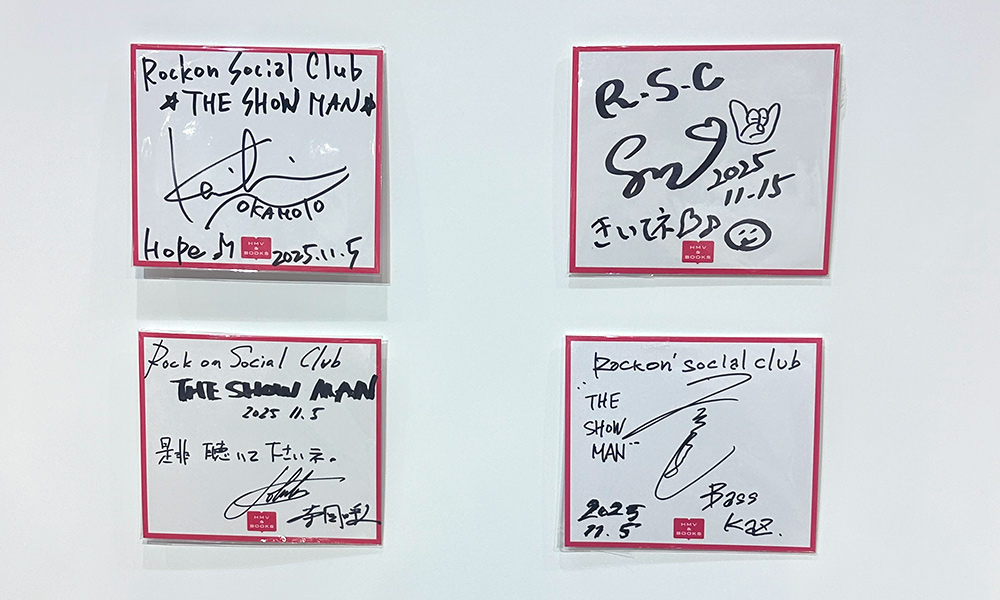 Rockon Social Club
☆THE SHOW MAN☆
OKAMOTO
Hope♪
HMV
&
BOOKS
2025.11.5
R.S.C
2025
11.15
きいてネ
HMV
&
BOOKS
Rock on Social Club
THE SHOW MAN
2025 11.5
是非 聴いて下さいネ。
HMV
&
BOOKS
Rockon' social club
"THE
SHOW
MAN"
Bass
Kaz.
2025
11.5
HMV
&
BOOKS